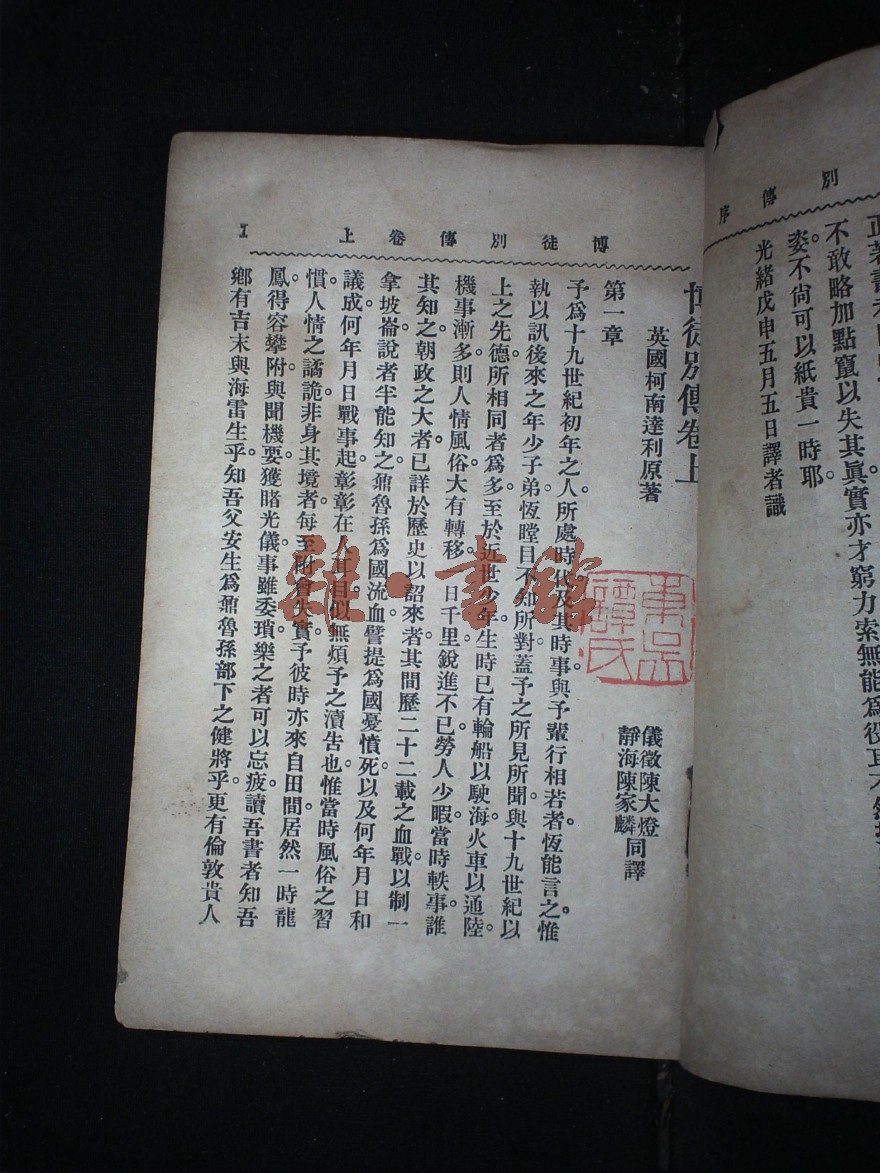 別傳序
正著書
不敢略加點竄以失其眞實亦才窮力索無能爲役
姿不尙可以紙貴一時耶
光緒戊申五月五日譯者識
博徒別傳卷上
1
博徒別傳卷上
英國柯南達利原著
儀徵陳大燈
靜海陳家麟同譯
東吳
薛氏
第一章
予爲十九世紀初年之人。所處時代及其時事與予輩行相若者恆能言之。惟
執以訊後來之年少子弟恆瞠目不知所對。蓋予之所見所聞與十九世紀以
上之先德所相同者爲多。至於近世少年生時已有輪船以駛海火車以通陸。
機事漸多則人情風俗大有轉移一日千里銳進不已勞人少暇當時軼事誰
其知之。朝政之大者已詳於歷史以詔來者其間歷二十二載之血戰以制一
拿坡崙說者半能知之。鼐魯孫爲國流血譬提爲國憂憤死以及何年月日和
議成何年月日戰事起彰彰在人耳目似無煩予之瀆告也。惟當時風俗之習
慣人情之譎詭非身其境者每至附會失實。予彼時亦來自田間居然一時龍
鳳得容攀附與聞機要獲睹光儀事雖委瑣樂之者可以忘疲。讀吾書者知吾
鄉有吉末與海雷生乎。知吾父安生爲鼐魯孫部下之健將乎。更有倫敦貴人
雜·書館